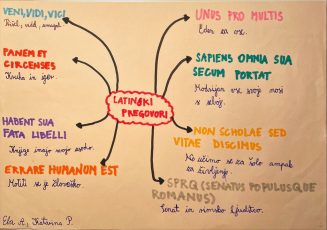 VENI, VIDI, VICI
Prišel, videl, zmagal.
PANEM ET
CIRCENSES
Kruha in iger.
HABENT SUA
FATA LIBELLI
Knjige imajo svojo usodo.
ERRARE HUMANUM EST
Motiti se je človeško.
LATINSKI
PREGOVORI
UNUS PRO MULTIS
Eden za vse.
SAPIENS OMNIA SUA
SECUM PORTAT
Moder vse svoje nosi
s seboj.
NON SCHOLAE SED
VITAE DISCIMUS
Ne učimo se za šolo ampak
za življenje.
SPRQ (SENATUS POPULUSQUE
ROMANUS)
Senat in rimsko ljudstvo.
Ela A., Katarina P.